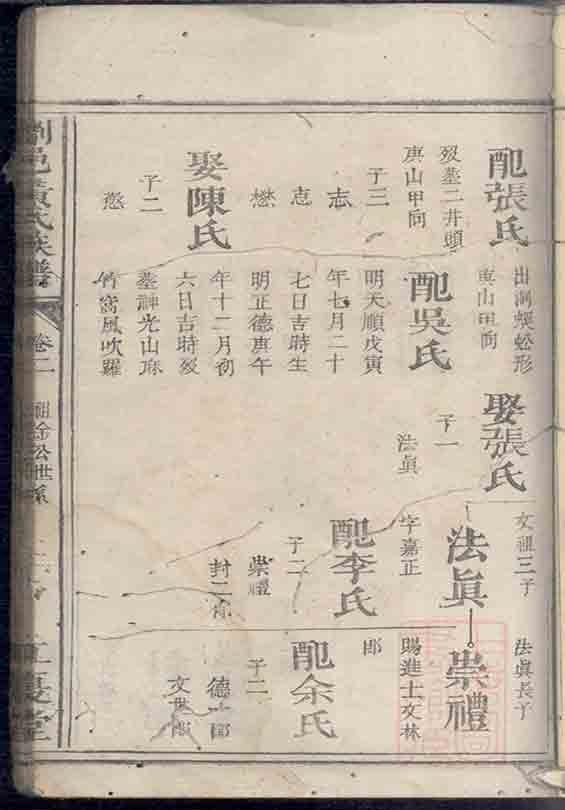 配張氏
歿墓二井頭
庚山甲向
子三
志
懋
娶陳氏
子二
出洞蜈蚣形
庚山甲向
配吳氏
明天順戊寅
年七月二十
七日吉時生
明正德庚午
年十二月初
六日吉時歿
墓神光山麻
竹窩風吹羅
娶張氏
子一
法眞
文祖三子
法眞
字嘉正
配李氏
子二
崇禮
法眞長子
崇禮
賜進士文林
郎
配余氏
子二
邑黃氏族譜
卷二
公世系
江夏堂